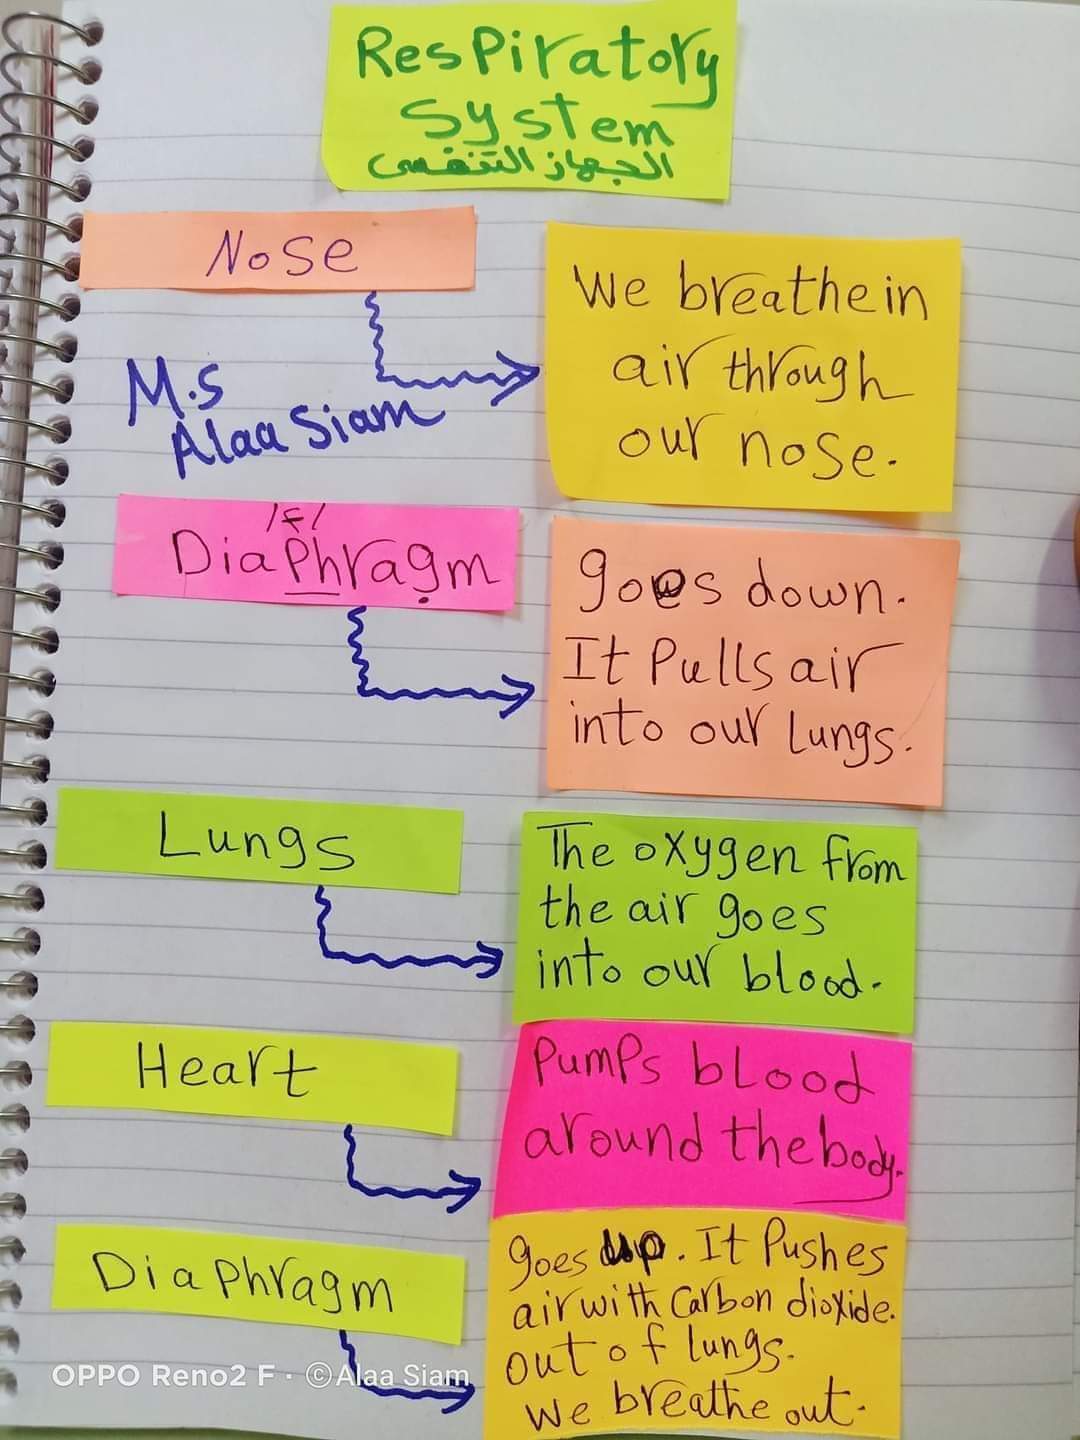 Respiratory
System
الجهاز التنفسى
Nose
We breathe in
air through
our nose.
M.s
Alaa Siam
/f/
Diaphragm
goes down.
It Pulls air
into our Lungs.
Lungs
The oxygen from
the air goes
into our blood.
Heart
Pumps blood
around the body.
Diaphragm
goes up. It Pushes
air with Carbon dioxide.
out of lungs.
We breathe out.
OPPO Reno2 F · ©Alaa Siam